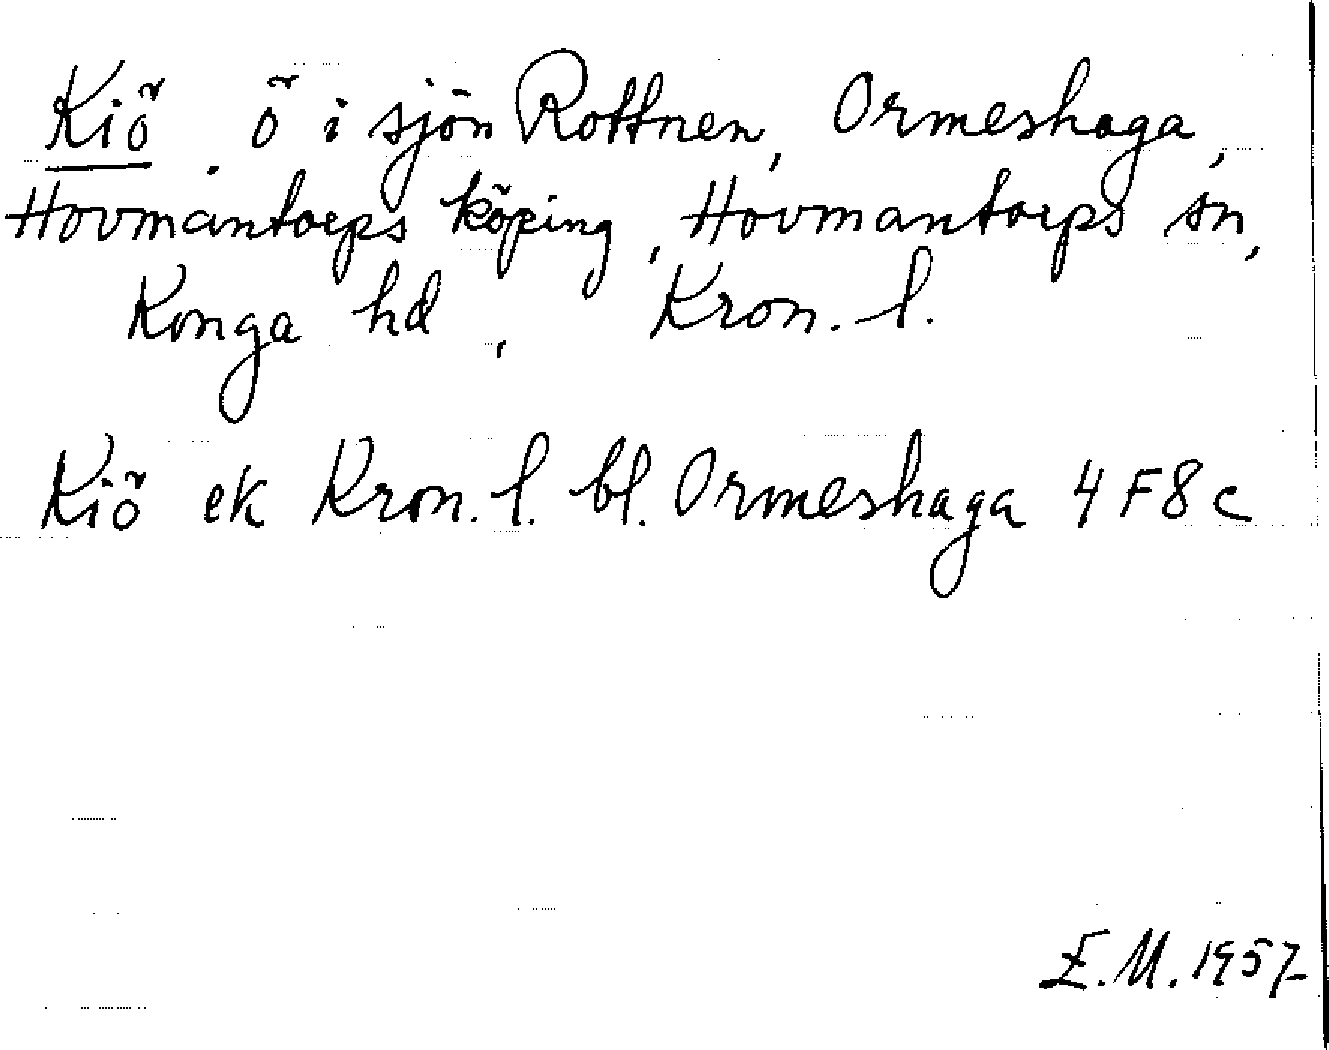 Kiö. ö i sjön Rottnen, Ormeshaga,
Hovmantorps köping, Hovmantorps sn,
Konga hd, Kron. l.
Kiö ek Kron. l. bl. Ormeshaga 4F8c
E.M. 1957